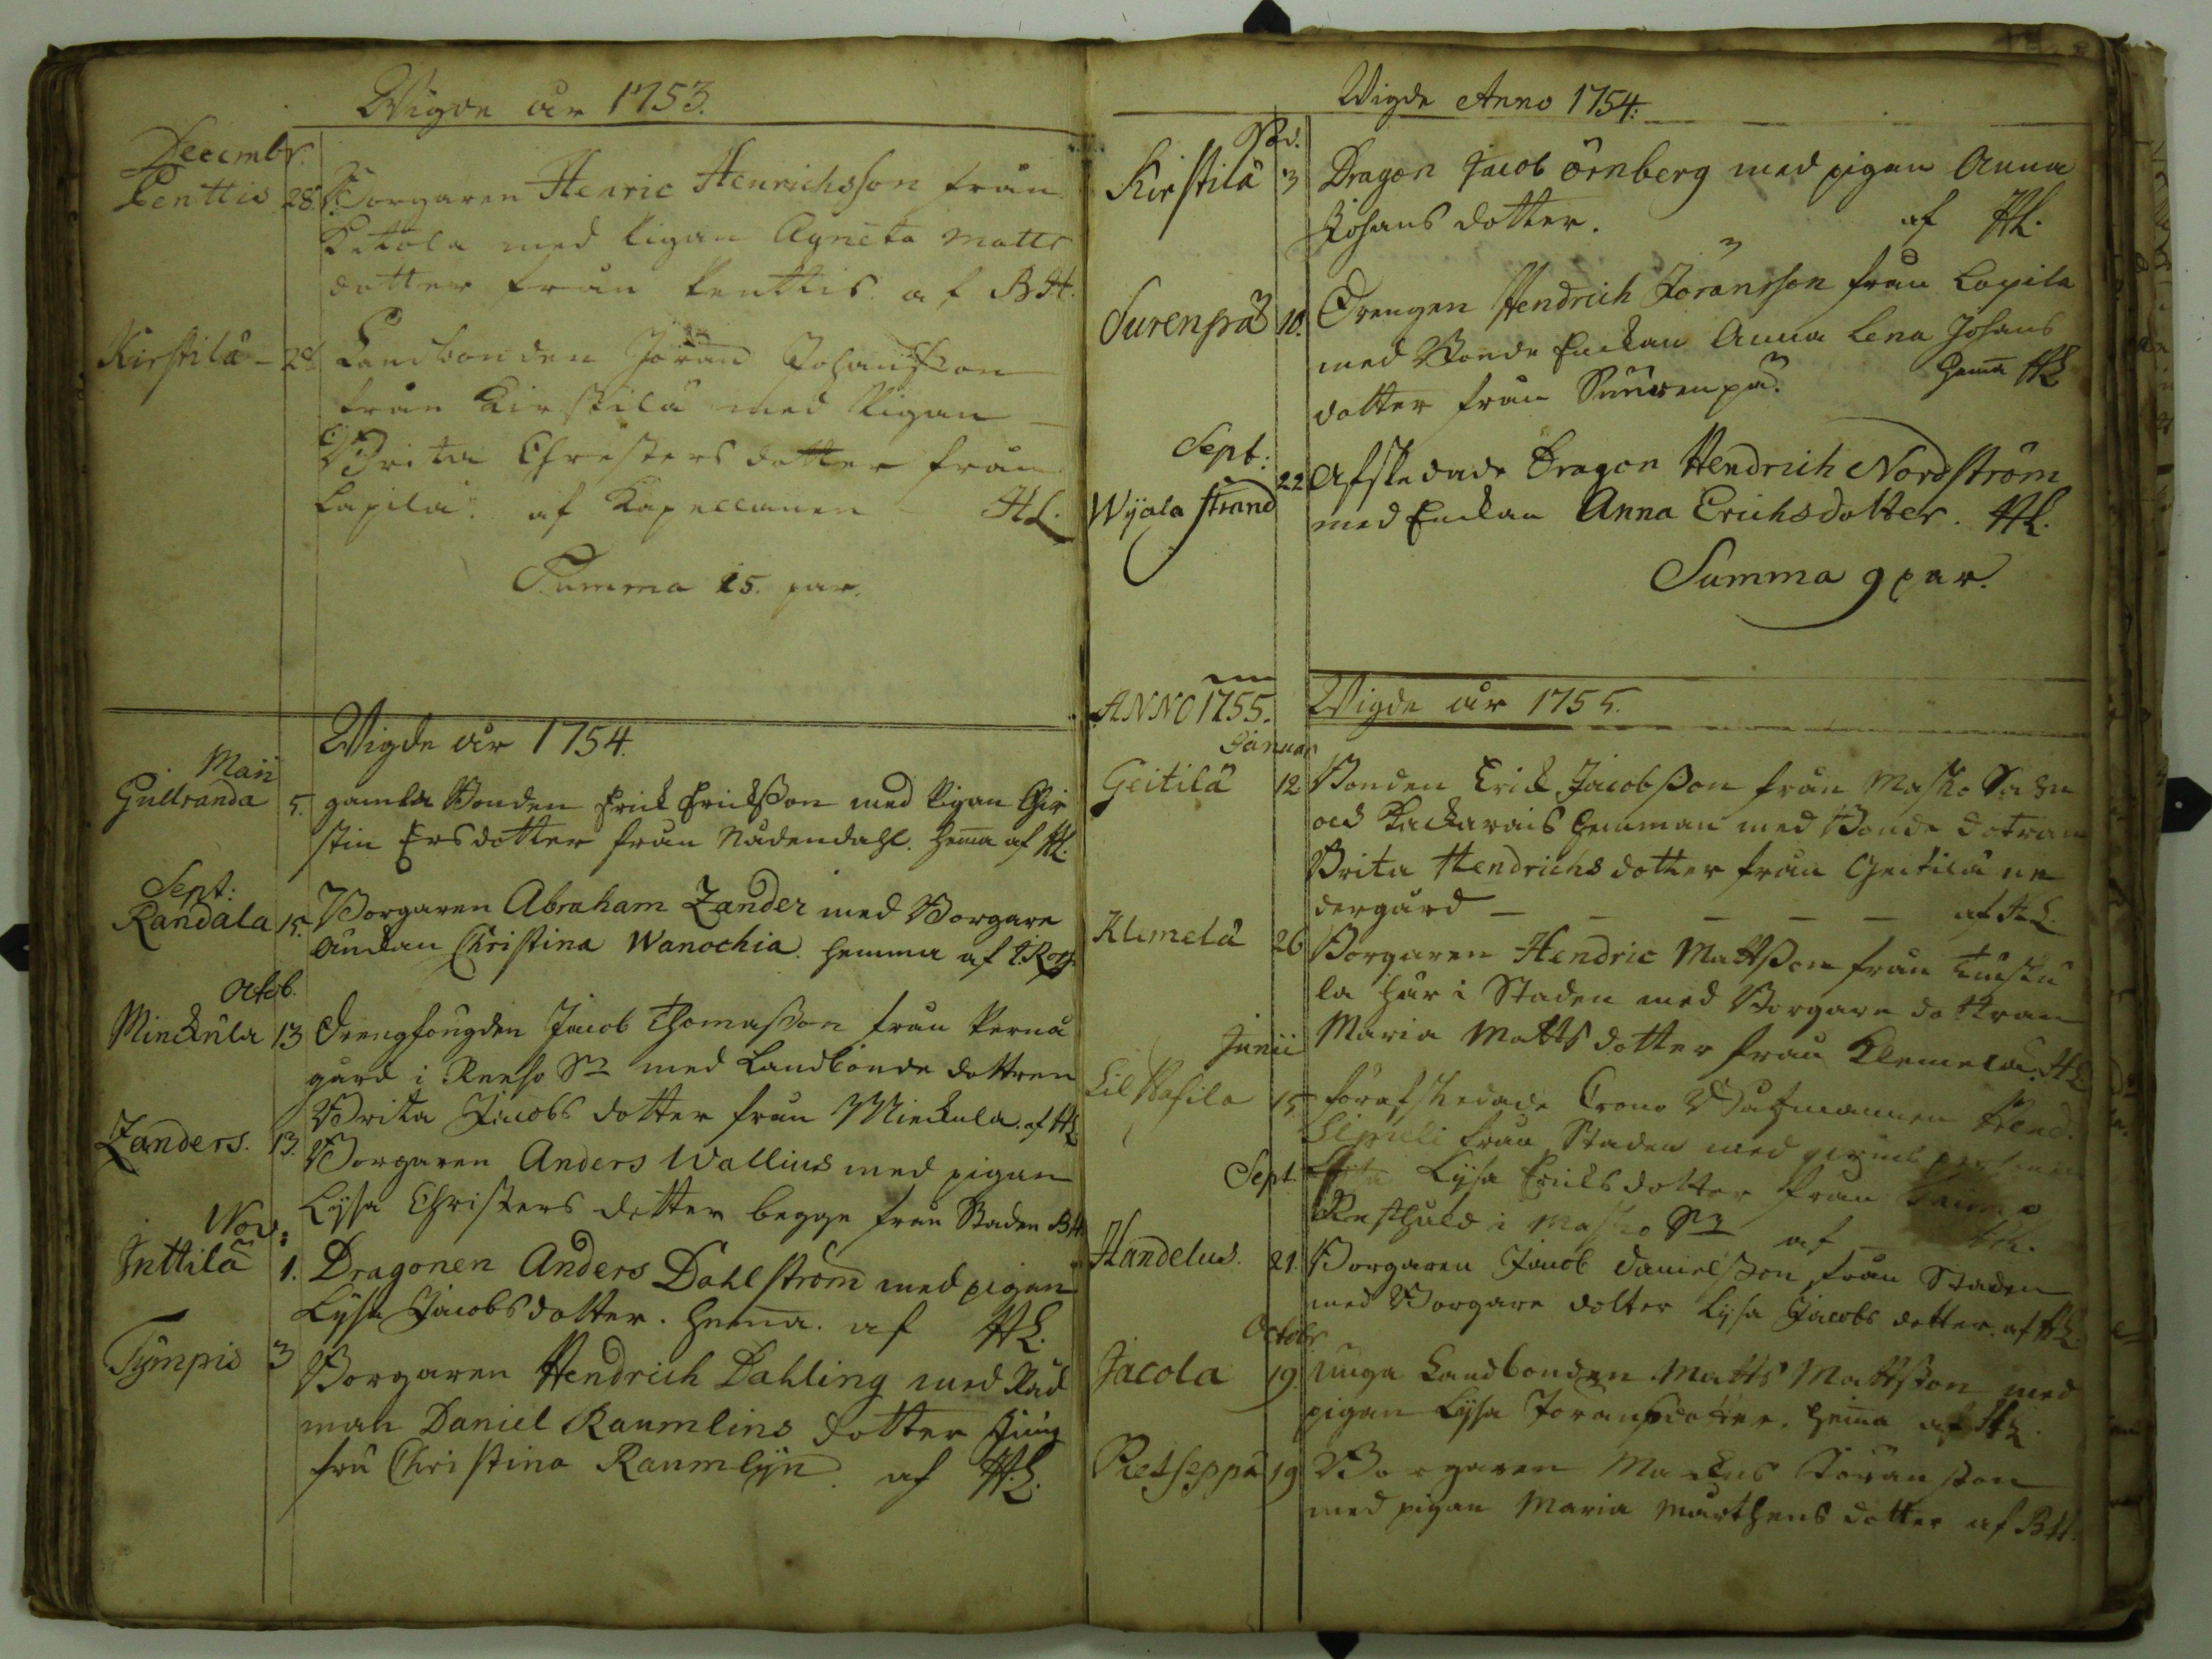 Wigde år 1753.
Decembr.
Penttis 28. Borgaren Henric Henrichsson från
Ketola med Pigan Agneta Matts
dotter från Penttis. af BH.
Kirstilä - 28 Landbonden Jöran Johansson
från Kirstilä med Pigan
Brita Christers dotter från
Lapila. af Kapellanen HL.
Summa 15. par.
Wigde år 1754.
Maii
Gullranda 5. gamla Bonden Erick Ericksson med Pigan Chir
stin Ersdotter från Nådendahl. hema af HL.
Sept:
Randala 15. Borgaren Abraham Zander med Borgare
Änckan Christina Wanochia. hemma af
Octob.
Minckula 13 Drengfougden Jacob Thomasson från Perno
gård i Reso Sn med Landbonde dottren
Brita Jacobs dotter från Minckula. af HL
Zanders. 13. Borgaren Anders Wallius med pigan
Lysa Christers dotter begge från Staden BH
Nov:
Inttilä 1. Dragonen Anders Dahlström med pigan
Lysa Jacobsdotter. hema. af HL.
Tympis 3 Borgaren Hendrich Dahling med Råd
man Daniel Raumlins dotter Jung
fru Christina Raumlyn. af HL.
Wigde Anno 1754:
Kirstilä 3 Dragon Jacob Örnberg med pigan Anna
Johans dotter. af HL.
Surenpä 10. Drengen Hendrich Jöransson från Lapila
med Bonde Enckan Anna Lena Johans
dotter från Surenpä. hema HL
Sept:
Wyala strand 22 Afskedade Dragon Hendrich Nordström
med Enckan Anna Erichsdotter. HL.
Summa 9 par.
ANNO 1755. Wigde år 1755.
Januar
Geitilä 12 Bonden Erick Jacobsson från Masko Sokn
och hemman med Bonde dotran
Brita Hendrichs dotter från Geitilä ne
dergård - - - - - af HL.
Klemelä 26 Borgaren Hendric Mattsson från
la här i Staden med Borgare dottran
Maria Matts dotter från Klemelä. HL
Junii
Lill 15 för afskedade Crono Båtzmannen Hend.
från Staden med
Lysa Ericks dotter från
i Masko Sn af HL.
Sept.
Handelus. 21. Borgaren Jacob Danielsson från Staden
med Borgare dotter Lysa Jacobs dotter. af HL
Octobr
Jacola 19. unga Landbonden Matts Mattsson med
pigan Lysa Joransdotter. hema af HL.
Rietseppä 19 Borgaren Marcus Jöransson
med pigan Maria Marthens dotter af BH.